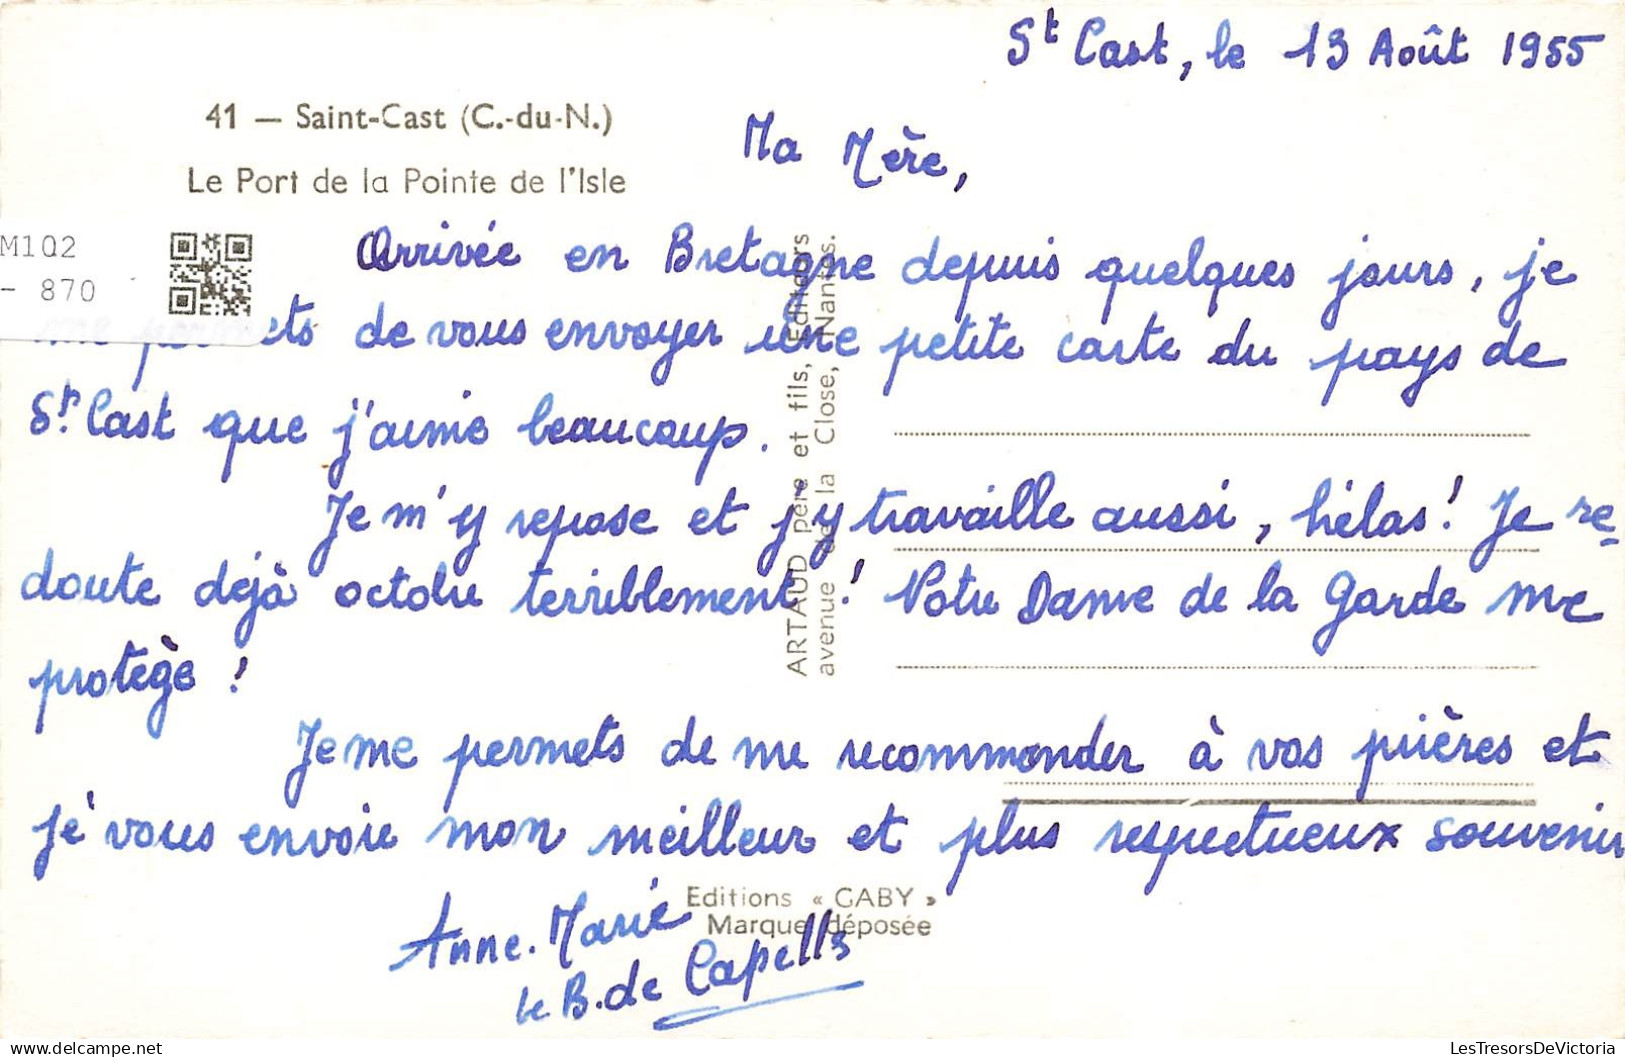 St Cast, le 13 Août 1955
41 — Saint-Cast (C.-du-N.)
Le Port de la Pointe de l'Isle
M102
- 870
Ma Mère,
Arrivée en Bretagne depuis quelques jours, je
me permets de vous envoyer une petite carte du pays de
St. Cast que j'aime beaucoup.
Je m'y repose et j'y travaille aussi, hélas! Je re-
doute déjà octobre terriblement! Notre Dame de la Garde me
protège!
Je me permets de me recommander à vos prières et
je vous envoie mon meilleur et plus respectueux souvenir
Anne-Marie
le B. de Capells
ARTAUD père et fils, Editeurs
avenue de la Close, Nantes.
Editions « GABY »
Marque déposée
LesTresorsDeVictoria